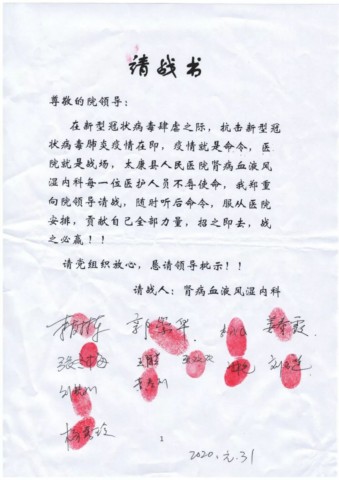 请战书
尊敬的院领导：
在新型冠状病毒肆虐之际，抗击新型冠
状病毒肺炎疫情在即，疫情就是命令，医
院就是战场，太康县人民医院肾病血液风
湿内科每一位医护人员不辱使命，我郑重
向院领导请战，随时听后命令，服从医院
安排，贡献自己全部力量，招之即去，战
之必赢！！
请党组织放心，恳请领导批示！！
请战人：肾病血液风湿内科
1
2020.元.31